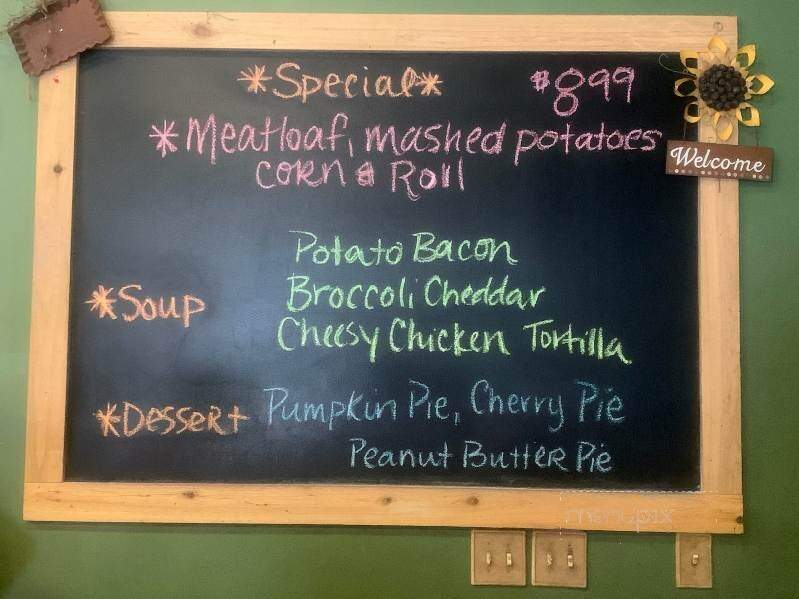 *Special* $8.99
*Meatloaf, mashed potatoes
corn & Roll
Welcome
Potato Bacon
*Soup Broccoli Cheddar
Cheesy Chicken Tortilla
*Dessert Pumpkin Pie, Cherry Pie
Peanut Butter Pie
menupix